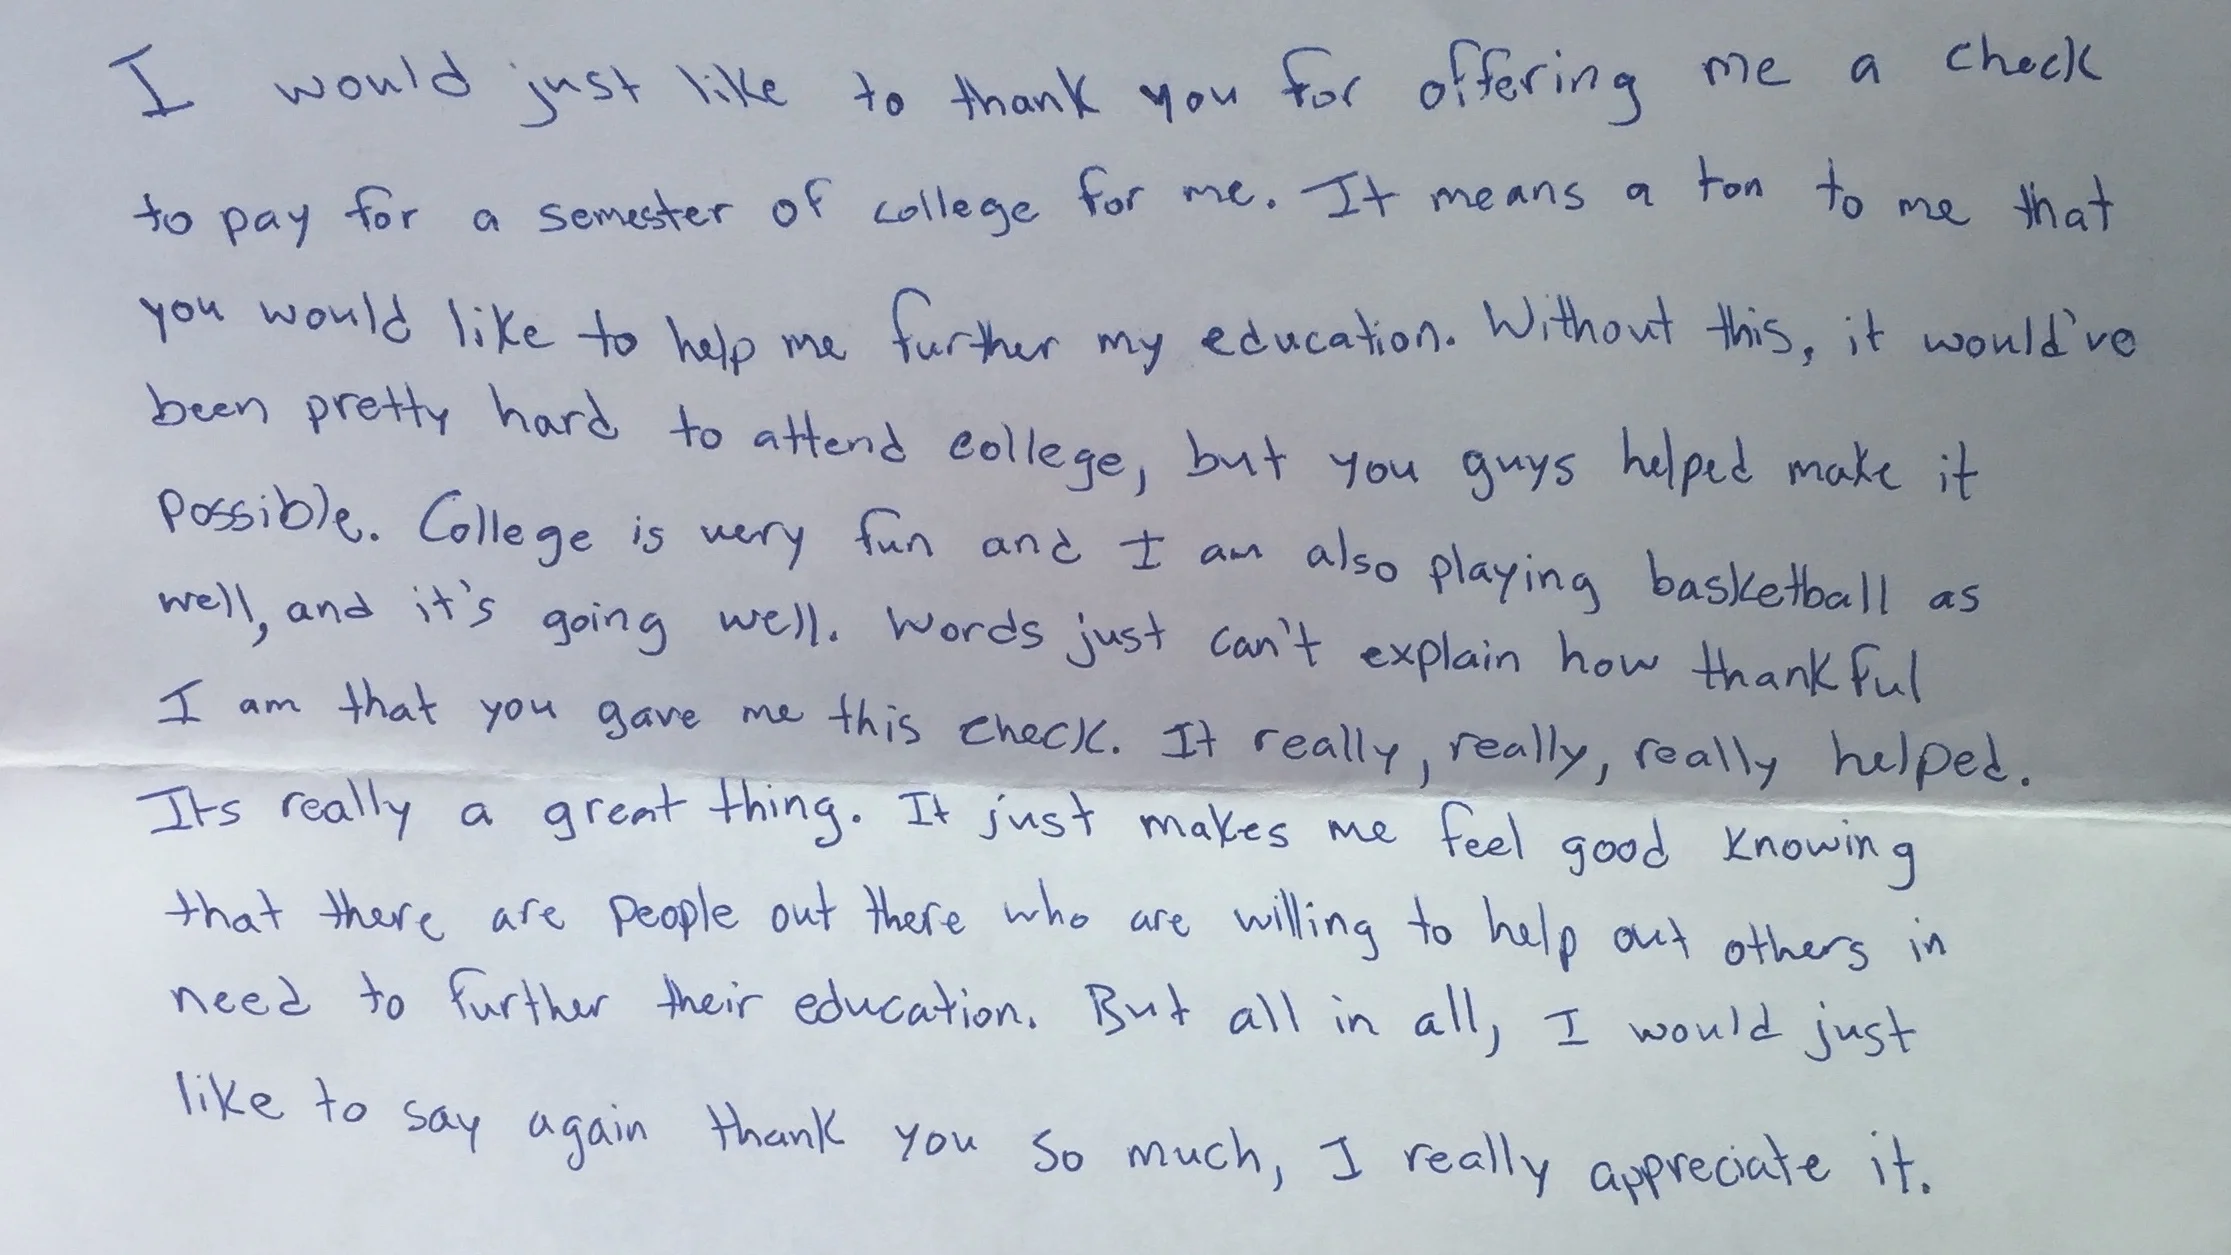 I would just like to thank you for offering me a check
to pay for a semester of college for me. It means a ton to me that
you would like to help me further my education. Without this, it would've
been pretty hard to attend college, but you guys helped make it
possible. College is very fun and I am also playing basketball as
well, and it's going well. Words just can't explain how thankful
I am that you gave me this check. It really, really, really helped.
Its really a great thing. It just makes me feel good knowing
that there are people out there who are willing to help out others in
need to further their education. But all in all, I would just
like to say again thank you so much, I really appreciate it.